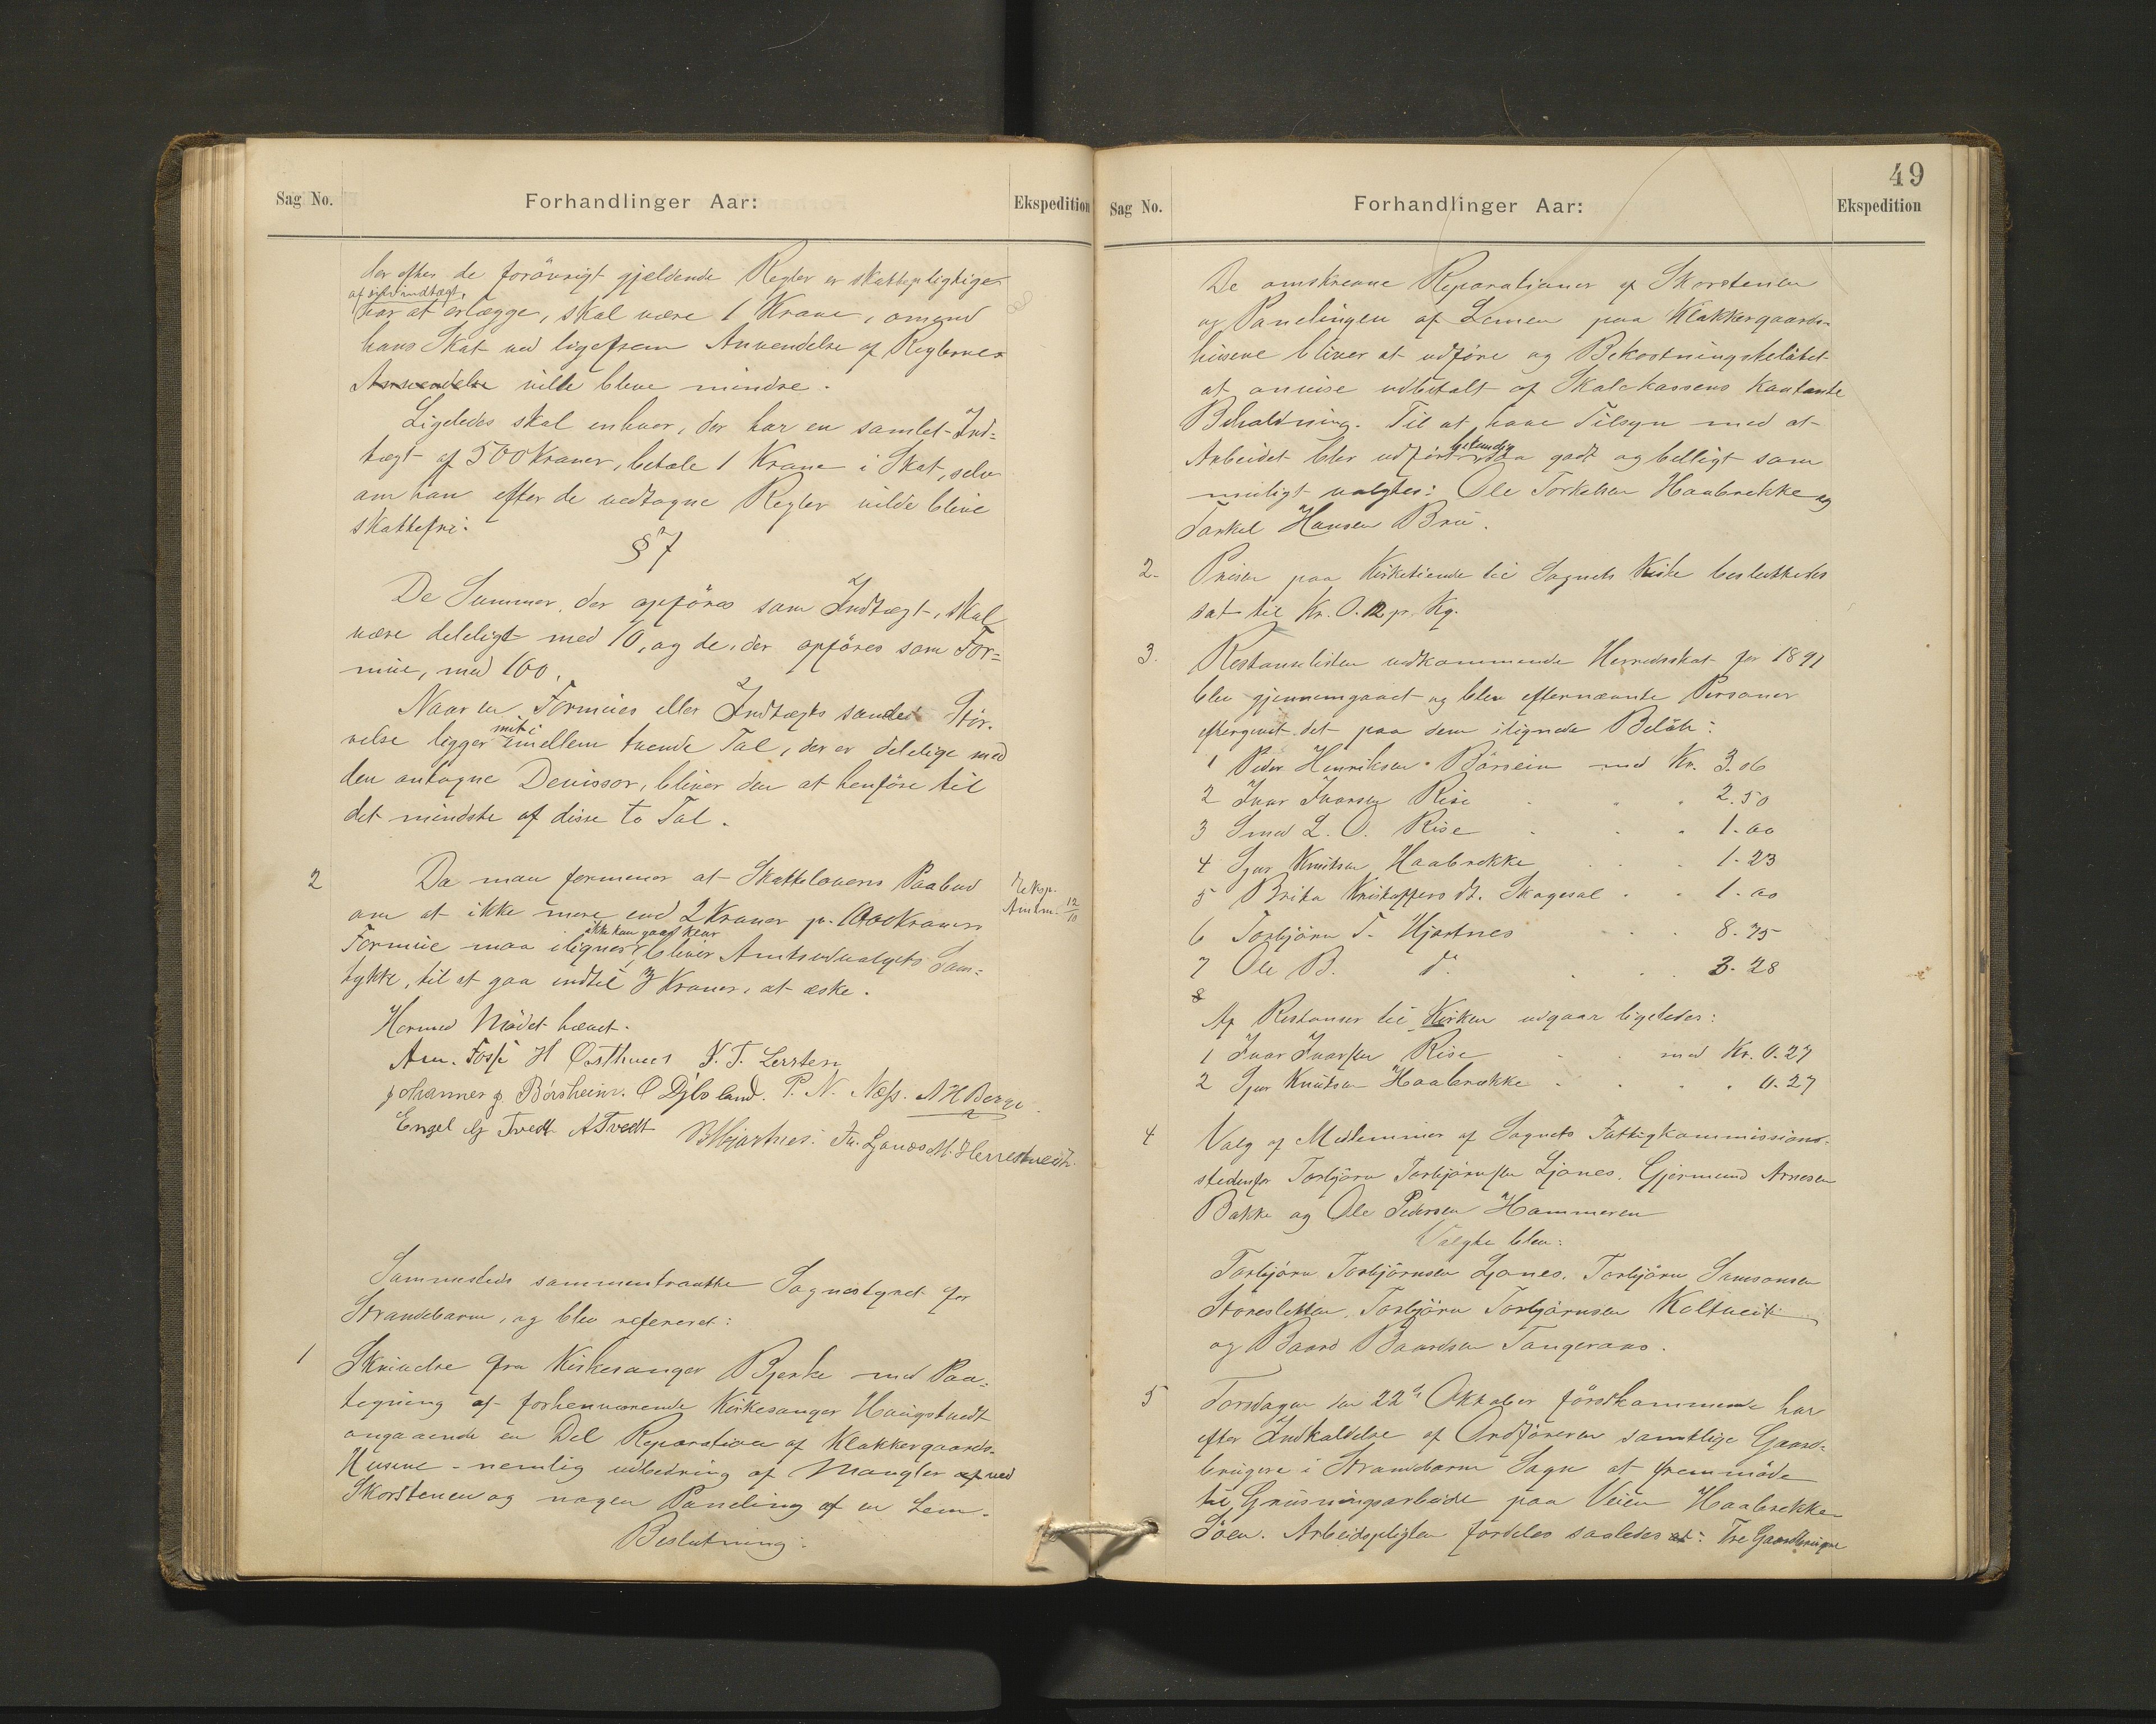 Sag No.
Forhandlinger Aar:
Ekspedition
der efter de forövrigt gjeldende Regler er skattepligtige
af sin indtægt,
har at erlægge, skal være 1 Krone, omend
hans Skat ved ligefrem Anvendelse af Reglernes
Anvendelse vilde bleve mindre.
Ligeledes skal enhver, der har en samlet Ind=
tægt af 500 Kroner, betale 1 Krone i Skat, selv
om han efter de vedtagne Regler vilde blive
skattefri.
§ 7
De Summer, der opföres som Indtægt, skal
være deleligt med 10, og de, der opföres som For=
mue, med 100.
Naar en Formues eller Indtægts sande Stör-
relse ligger midt imellem tvende Tal, der er delelige med
den antagne Devissor, bliver den at henföre til
det mindste af disse to Tal.
2
Da man formener at Skattelovens Paabud
om at ikke mere end 2 Kroner pr. 1000 Kroner
Formue maa ilignes, ikke kan gaaes, bliver Amtsudvalgets Sam=
tykke, til at gaa indtil 3 Kroner, at æske.
Eksp.
Amtm. 12/10
Hermed Mödet hævet.
Am. Fosse H Østhuus N. T. Lersten
Johannes J. Börsheim. O Djæveland. P. N. Næss. A H Berge
Engel Tvedt A Tvedt B Hjartnes. Th. Ljones M. Herrestveit.
Sammesteds sammentraadte Sognestyret for
Strandebarm, og blev refereret:
1
Skrivelse fra Kirkesanger Bjerke med Paa=
tegning af forhenværende Kirkesanger Haugstvedt
angaaende en Del Reparation af Klokkergaards-
Husene - nemlig udbedring af Mangler af ved
Skorstenen og nogen Paneling af en Lem.
Beslutning:
49
Sag No.
Forhandlinger Aar:
Ekspedition
De omskrevne Reparationer af Skorstenen
og Panelingen af Lemen paa Klokkergaards-
husene bliver at udföre og Bekostningsbelöbet
at anvise udbetalt af Skolekassens Kontante
Beholdning. Til at have Tilsyn med at
Arbeidet blev udfört saa godt og billigt som
muligt valgtes: Ole Torkelsen Haabrekke og
Torkel Hansen Bru.
2-
Prisen paa Kirketiende til Sognets Kirke besluttedes
sat til Kr. 0.12 pr. Kg.
3.
Restanselisten vedkommende Herredsskat for 1891
blev gjennemgaaet og blev efternævnte Personer
eftergivet det paa dem ilignede Belöb:
1 Peder Henriksen Börsein med Kr. 3.06
2 Ivar Ivarsen Rise " " " 2.50
3 Smed L. O. Rise " " " 1.00
4 Sjur Knutsen Haabrekke " " 1.23
5 Brita Kristoffersdt. Skogesal " " 1.00
6 Torbjörn T. Hjartnes " " " 8.75
7 Ole B. do " " " 3.28
8
Af Restanser til Kirken udgaar ligeledes:
1 Ivar Ivarsen Rise " " med Kr. 0.27
2 Sjur Knutsen Haabrekke " " " 0.27
4
Valg af Medlemmer af Sognets Fattigkommission
stedenfor Torbjörn Torbjörnsen Ljones, Gjermund Arnesen
Bakke og Ole Pedersen Hammeren
Valgte blev:
Torbjörn Torbjörnsen Ljones, Torbjörn Samsonsen
Storesletten, Torbjörn Torbjörnsen Koltveit
og Baard Baardsen Tangeraas.
5
Torsdagen den 22de Oktober förstkommende har
efter Indkaldelse af Ordföreren samtlige Gaard-
brugere i Strandebarm Sogn at fremmöde
til Grusningsarbeide paa Veien Haabrekke-
Söen. Arbeidspligten fordeles saaledes at: Tre Gaardbrugere